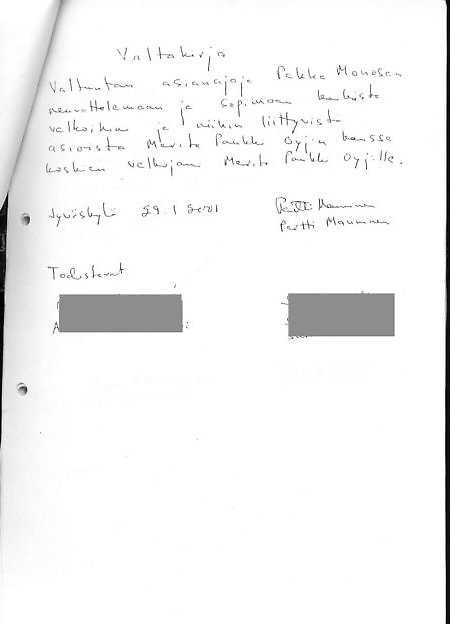 Valtakirja
Valtuutan asianajaja Pekka Monosen
neuvottelemaan ja sopimaan kaikista
velkoihin ja niihin liittyvistä
asioista Merita Pankki Oyj:n kanssa
koskien velkojani Merita Pankki Oyj:lle.
Jyväskylä 29.1 2001
Pertti Manninen
Todistavat